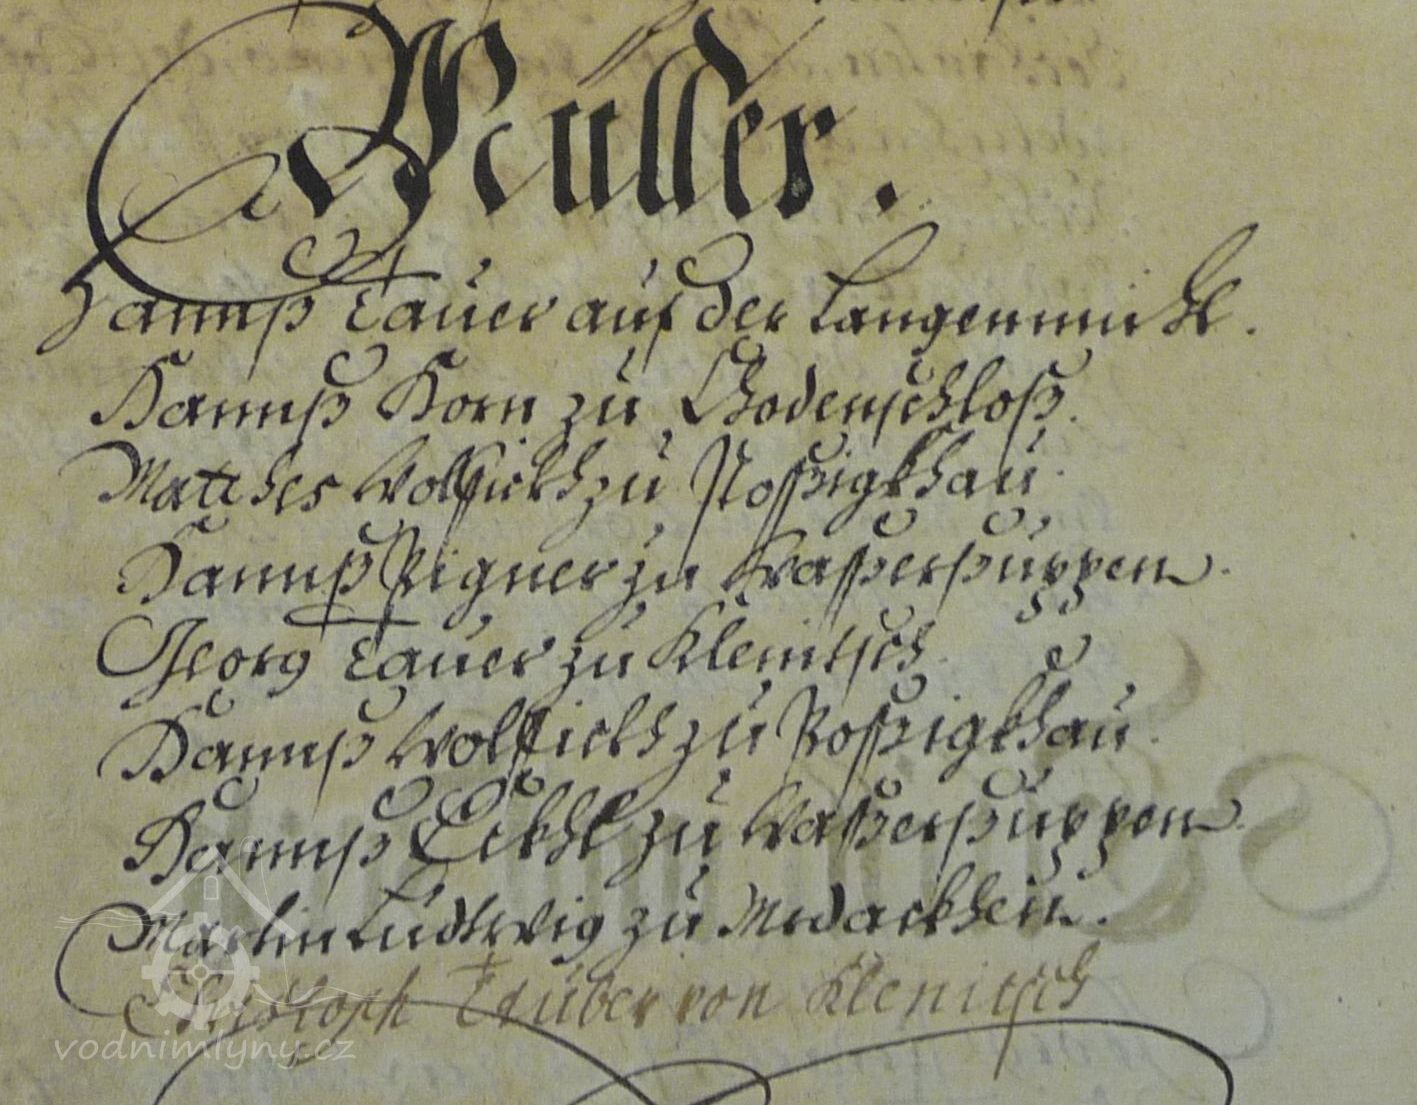 Müller.
Hannß Tauer auf der Langenmichl.
Hannß Korn zu Chodenschloß.
Matthes Wolfickh zu Poßigkhau.
Hannß Rigner zu Waßersuppen.
Georg Tauer zu Klenitsch.
Hannß Wolfickh zu Poßigkhau.
Hannß Eckhl zu Waßersuppen.
Martin Ludtwig zu Medackhen.
Christoph Tauber von Klenitsch
vodnimlyny.cz